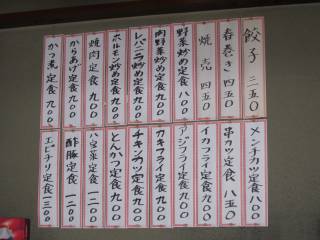 餃子 三五〇
春巻き 四五〇
焼売 四五〇
野菜炒め定食 八〇〇
肉野菜炒め定食 九〇〇
レバニラ炒め定食 九〇〇
ホルモン炒め定食 九〇〇
焼肉定食 九〇〇
からあげ定食 九〇〇
かつ煮定食 九〇〇
メンチカツ定食 八〇〇
串カツ定食 八五〇
イカフライ定食 九〇〇
アジフライ定食 九〇〇
カキフライ定食 九〇〇
チキンカツ定食 九〇〇
とんかつ定食 九〇〇
八宝菜定食 一二〇〇
酢豚定食 一二〇〇
エビチリ定食 一三〇〇